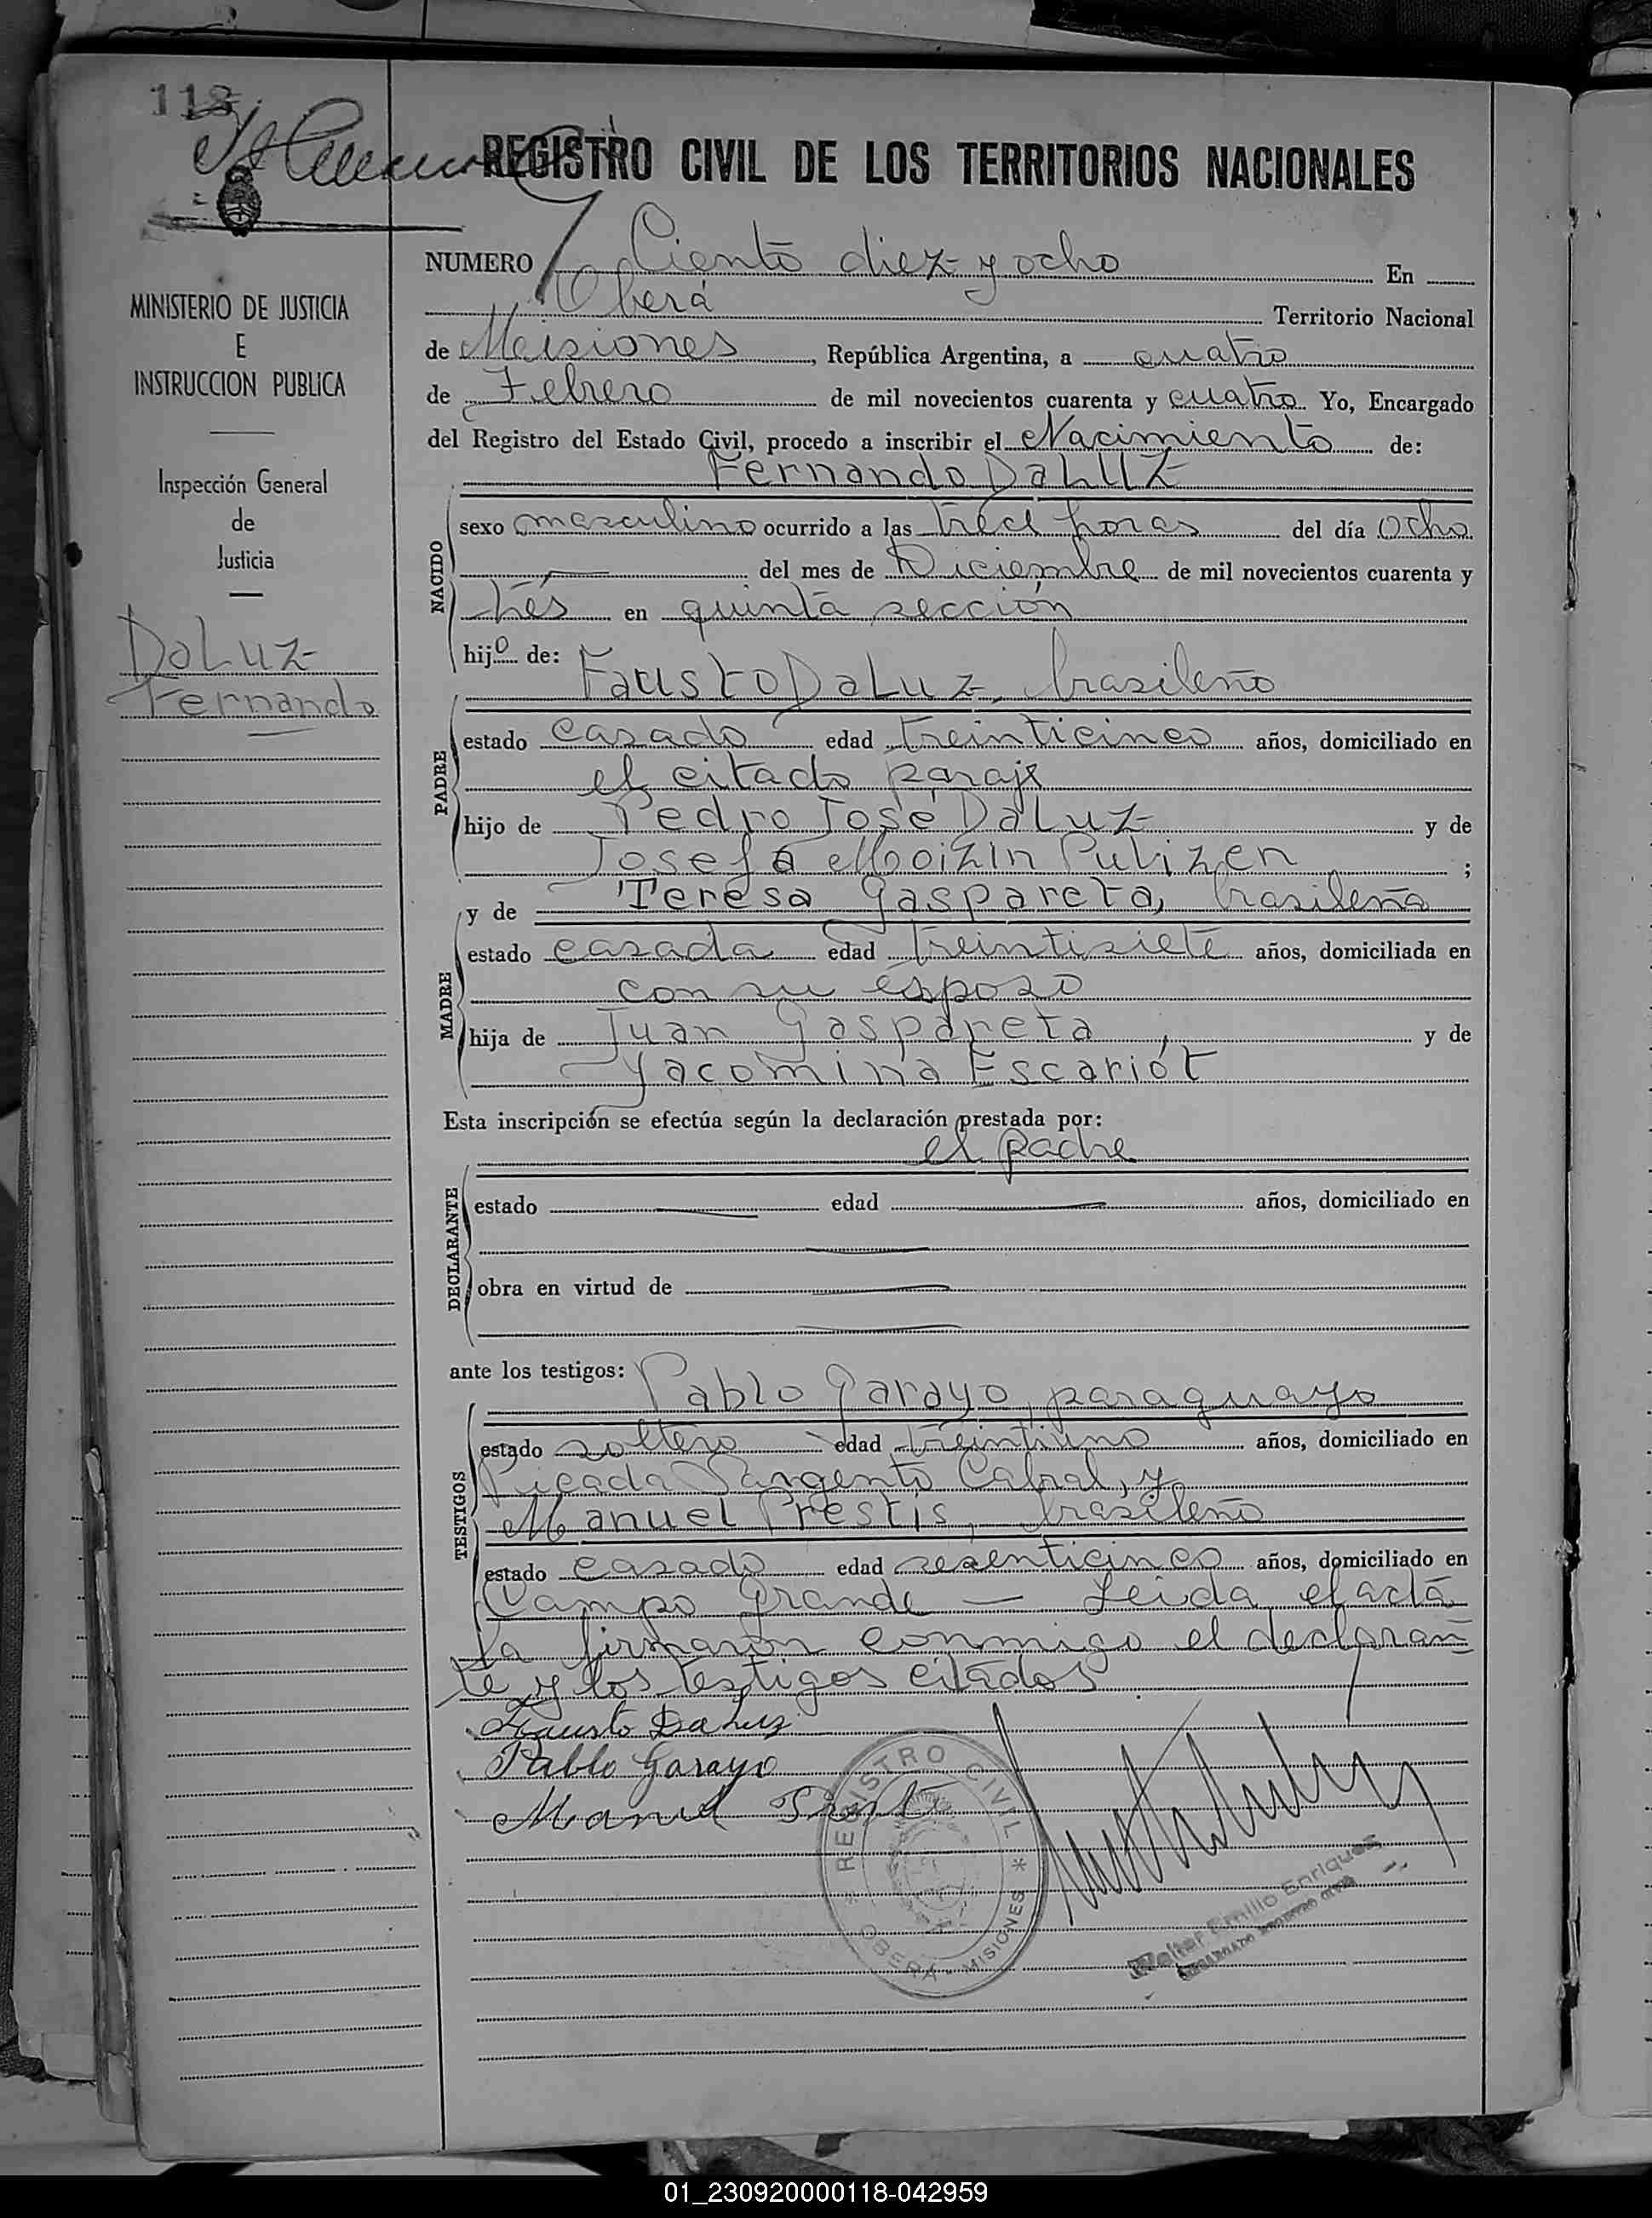 118
REGISTRO CIVIL DE LOS TERRITORIOS NACIONALES
MINISTERIO DE JUSTICIA
E
INSTRUCCION PUBLICA
Inspección General
de
Justicia
DaLuz
Fernando
NUMERO Ciento diez y ocho En
Oberá Territorio Nacional
de Misiones, República Argentina, a cuatro
de Febrero de mil novecientos cuarenta y cuatro Yo, Encargado
del Registro del Estado Civil, procedo a inscribir el Nacimiento de:
Fernando DaLUZ
NACIDO
sexo masculino ocurrido a las trece horas del día ocho
del mes de Diciembre de mil novecientos cuarenta y
trés en quinta sección
hijo de:
Fausto DaLuz, brasileño
PADRE
estado casado edad treinticinco años, domiciliado en
el citado paraje
hijo de Pedro José DaLuz y de
Josefa Moizin ;
y de Teresa Gaspareta, brasileña
MADRE
estado casada edad treintisiete años, domiciliada en
con su esposo
hija de Juan Gaspareta y de
Yacomina Escariót
Esta inscripción se efectúa según la declaración prestada por:
el padre
DECLARANTE
estado edad años, domiciliado en
obra en virtud de
ante los testigos:
Pablo Garayo, paraguayo
TESTIGOS
estado soltero edad treintiuno años, domiciliado en
Picada Sargento Cabral, y
Manuel Prestis, brasileño
estado casado edad sesenticinco años, domiciliado en
Campo Grande — Leida el acta
la firmaron conmigo el declaran
te y los testigos citados
Fausto DaLuz
Pablo Garayo
Manuel
REGISTRO CIVIL * OBERA - MISIONES
Walter Emilio Enriquez
ENCARGADO REGISTRO CIVIL
01_230920000118-042959